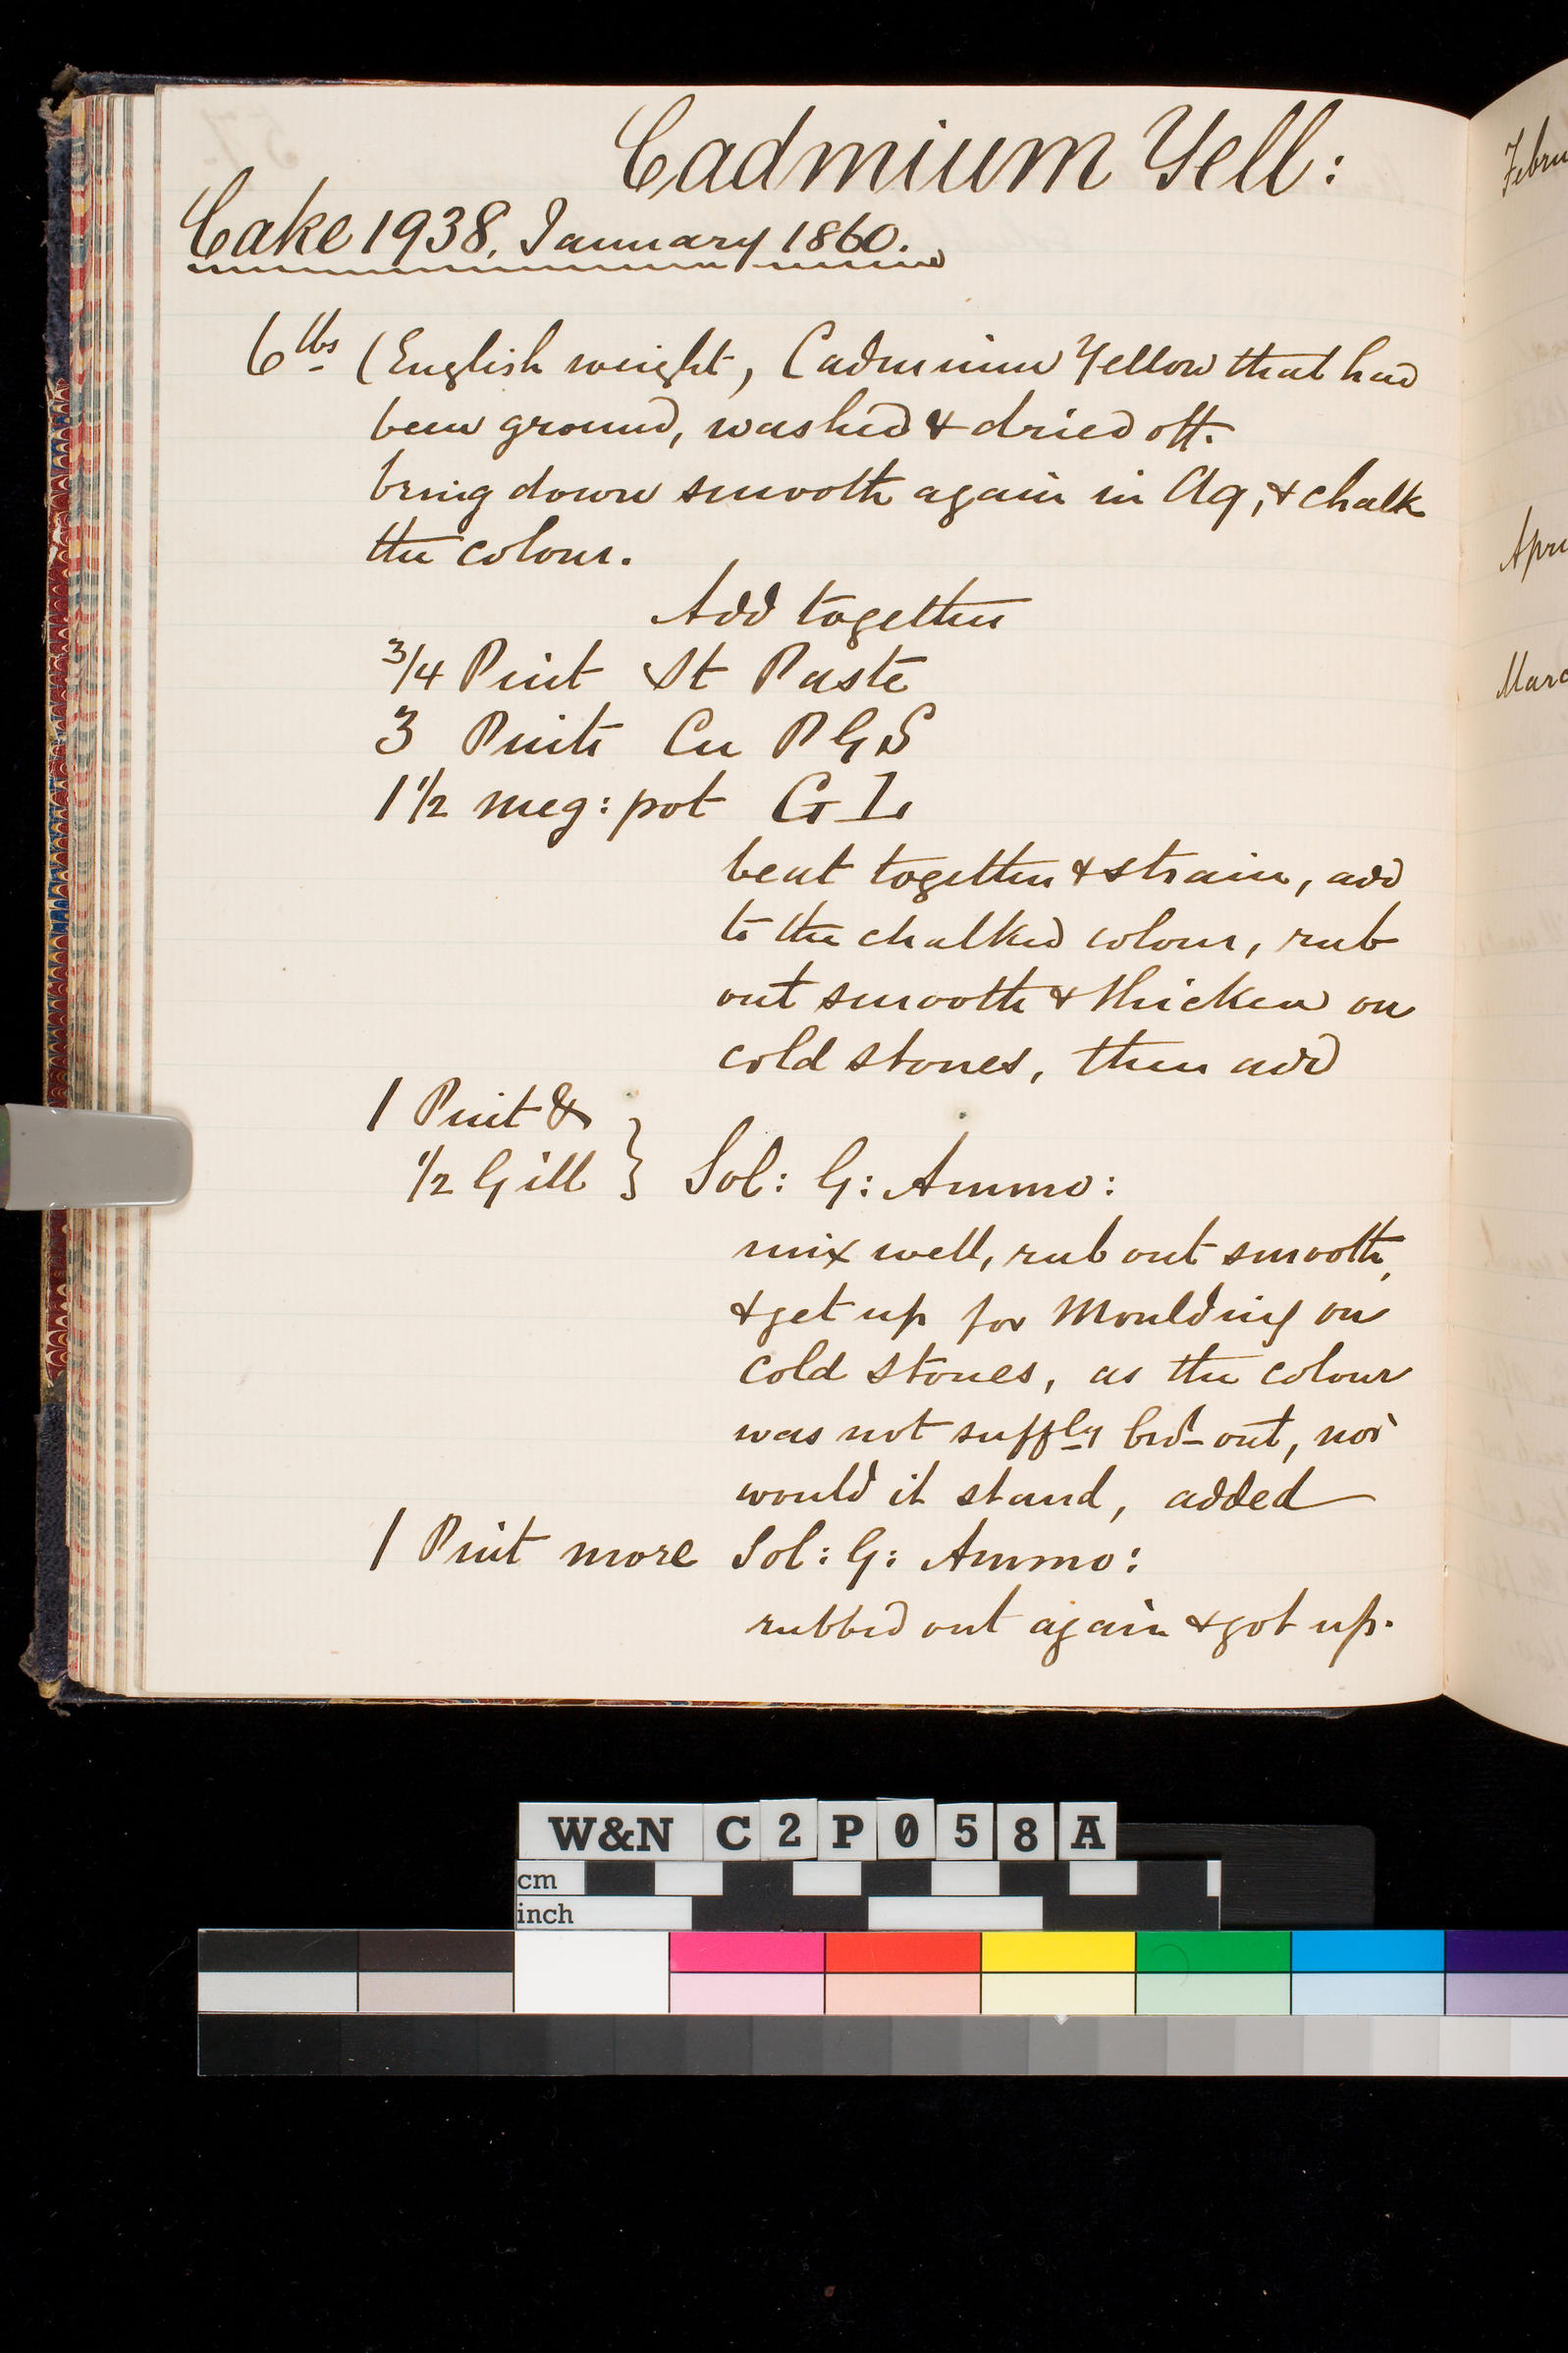 Cadmium Yell:
Cake 1938. January 1860.
6 lbs (English weight, Cadmium Yellow that had
been ground, washed & dried off.
bring down smooth again in Aq, & chalk
the colour.
Add together
3/4 Pint St Paste
3 Pints Cu P G S
1 1/2 meg: pot G L
beat together & strain, add
to the chalked colour, rub
out smooth & thicken on
cold stones, then add
1 Pint &
1/2 Gill } Sol: G: Ammo:
mix well, rub out smooth,
& get up for Moulding on
cold stones, as the colour
was not suffly bd out, nor
would it stand, added
1 Pint more Sol: G: Ammo:
rubbed out again & got up.
Febru
Apri
Marc
W&N C2P058A
cm
inch